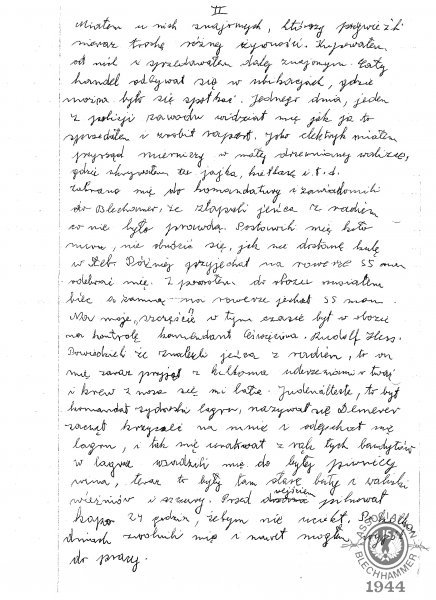 II
Miałem u nich znajomych, którzy przywieźli
nieraz trochę różnej żywności. Kupowałem
od nich i sprzedawałem dalej znajomym. Cały
handel odbywał się w ubikacjach, gdzie
można było się spotkać. Jednego dnia, jeden
z policji zawodu widział mię jak ja to
sprzedałem i zrobił raport. Jako elektryk miałem
przyrząd mierniczy w małej drewnianej walizce,
gdzie skrywałem te jajka, kiełbasę i.t.d.
zabrano mię do komandatury i zawiadomili
do Blechamer, że złapali jeńca z radiem
co nie było prawdą. Postawili mię koło
muru, nie obrócić się, jak nie dostanę kulę
w łeb. Później przyjechał na rowerze SS man
odebrać mię. Z powrotem do obozu musiałem
biec a za mną na rowerze jechał SS man.
Na moje "szczęście" w tym czasie był w obozie
na kontrolę komendant Oświęcimia. Rudolf Hess.
Powiedzieli że znaleźli jeńca z radiem, to on
mię zaraz przyjął z kilkoma uderzeniami w twarz
i krew z nosa się mi lała. Judenälteste, to był
komendat żydowski lagru, nazywał się Demerer
zaczął krzyczeć na mnie i odepchał mię
lagru, i tak mię uratował z rąk tych bandytów
w lagrze wsadzili mię do byłej piwnicy
wina, teraz to były tam stare buty i walizki
więźniów i szczury. Przed wejściem pilnował
kapo 24 godzin, żebym nie uciekł. Po kilku
dniach zwolnili mię i nawet mogłem pójść
do pracy.
ASSOCIATION
BLECHHAMMER
1944